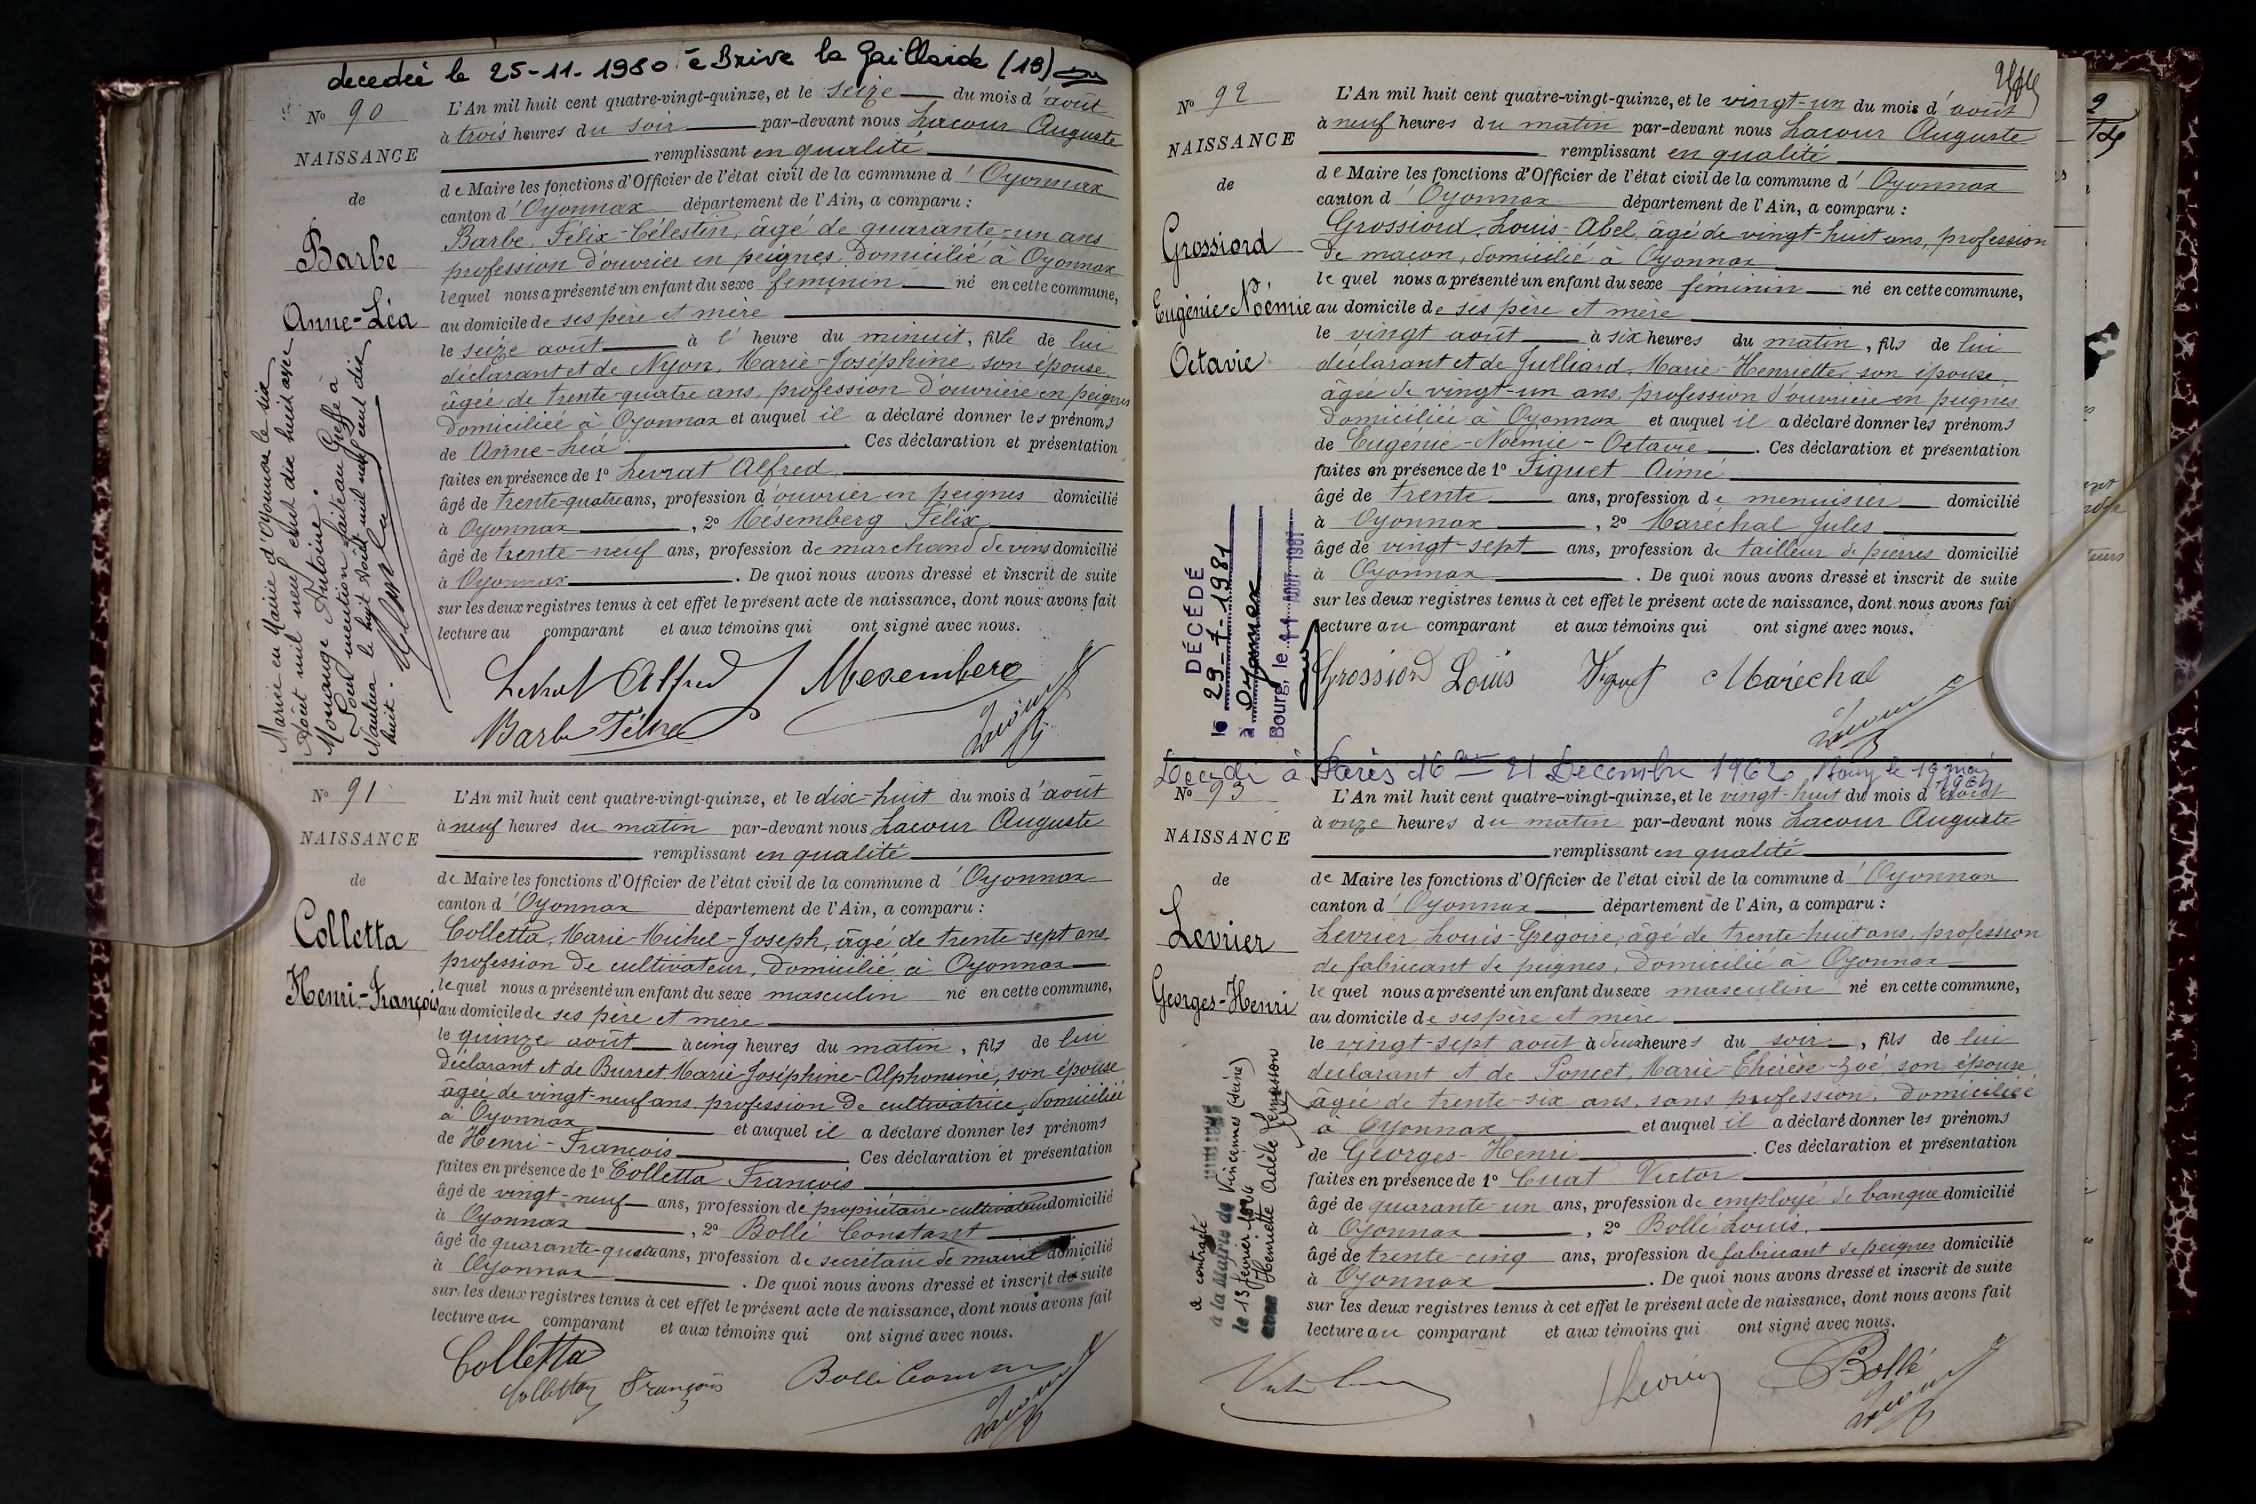 decedée le 25-11-1980 à Brive la Gaillarde (19)
No 90
NAISSANCE
de
Barbe
Anne-Léa
L'An mil huit cent quatre-vingt-quinze, et le seize du mois d'août
à trois heures du soir par-devant nous Lacour Auguste
remplissant en qualité
de Maire les fonctions d'Officier de l'état civil de la commune d'Oyonnax
canton d'Oyonnax département de l'Ain, a comparu :
Barbe, Félix-Célestin, âgé de quarante-un ans
profession d'ouvrier en peignes, domicilié à Oyonnax
lequel nous a présenté un enfant du sexe féminin né en cette commune,
au domicile de ses père et mère
le seize août à l' heure du minuit, fille de lui
déclarant et de Nyon, Marie-Joséphine, son épouse,
âgée de trente-quatre ans, profession d'ouvrière en peignes
domiciliée à Oyonnax et auquel il a déclaré donner les prénoms
de Anne-Léa . Ces déclaration et présentation
faites en présence de 1o Levrat Alfred
âgé de trente-quatre ans, profession d'ouvrier en peignes domicilié
à Oyonnax , 2o Mésemberg Félix
âgé de trente-neuf ans, profession de marchand de vins domicilié
à Oyonnax . De quoi nous avons dressé et inscrit de suite
sur les deux registres tenus à cet effet le présent acte de naissance, dont nous avons fait
lecture au comparant et aux témoins qui ont signé avec nous.
Levrat Alfred Mesemberg
Barbe Félix
Lacour
Mariée en Mairie d'Oyonnax le six
Août mil neuf cent dix huit avec
Monange Antoine.
Pour mention faite au Greffe à
Nantua le huit Août mil neuf cent dix
huit.
No 91
NAISSANCE
de
Colletta
Henri-François
L'An mil huit cent quatre-vingt-quinze, et le dix-huit du mois d'août
à neuf heures du matin par-devant nous Lacour Auguste
remplissant en qualité
de Maire les fonctions d'Officier de l'état civil de la commune d'Oyonnax
canton d'Oyonnax département de l'Ain, a comparu :
Colletta, Marie-Michel-Joseph, âgé de trente-sept ans,
profession de cultivateur, domicilié à Oyonnax
lequel nous a présenté un enfant du sexe masculin né en cette commune,
au domicile de ses père et mère
le quinze août à cinq heures du matin, fils de lui
déclarant et de Burret, Marie-Joséphine-Alphonsine, son épouse
âgée de vingt-neuf ans, profession de cultivatrice, domiciliée
à Oyonnax et auquel il a déclaré donner les prénoms
de Henri-François . Ces déclaration et présentation
faites en présence de 1o Colletta François
âgé de vingt-neuf ans, profession de propriétaire-cultivateur domicilié
à Oyonnax , 2o Bollé Constant
âgé de quarante-quatre ans, profession de secrétaire de mairie domicilié
à Oyonnax . De quoi nous avons dressé et inscrit de suite
sur les deux registres tenus à cet effet le présent acte de naissance, dont nous avons fait
lecture au comparant et aux témoins qui ont signé avec nous.
Colletta
Colletta François Bollé Constant
Lacour
No 92
NAISSANCE
de
Grossiord
Eugénie-Noémie
Octavie
L'An mil huit cent quatre-vingt-quinze, et le vingt-un du mois d'août
à neuf heures du matin par-devant nous Lacour Auguste
remplissant en qualité
de Maire les fonctions d'Officier de l'état civil de la commune d'Oyonnax
canton d'Oyonnax département de l'Ain, a comparu :
Grossiord, Louis-Abel, âgé de vingt-huit ans, profession
de maçon, domicilié à Oyonnax
lequel nous a présenté un enfant du sexe féminin né en cette commune,
au domicile de ses père et mère
le vingt août à six heures du matin, fils de lui
déclarant et de Julliard, Marie-Henriette, son épouse,
âgée de vingt-un ans, profession d'ouvrière en peignes
domiciliée à Oyonnax et auquel il a déclaré donner les prénoms
de Eugénie-Noémie-Octavie . Ces déclaration et présentation
faites en présence de 1o Figuet Aimé
âgé de trente ans, profession de menuisier domicilié
à Oyonnax , 2o Maréchal Jules
âgé de vingt-sept ans, profession de tailleur de pierres domicilié
à Oyonnax . De quoi nous avons dressé et inscrit de suite
sur les deux registres tenus à cet effet le présent acte de naissance, dont nous avons fai
lecture au comparant et aux témoins qui ont signé avec nous.
Grossiord Louis Figuet Maréchal
Lacour
DÉCÉDÉ
le 29-7-1981
à Oyonnax
Bourg, le AOUT 1981
Décédé à Paris 16 le 21 Décembre 1962 Bourg le 19 mai
No 93
NAISSANCE
de
Levrier
Georges-Henri
L'An mil huit cent quatre-vingt-quinze, et le vingt-huit du mois d'août
à onze heures du matin par-devant nous Lacour Auguste
remplissant en qualité
de Maire les fonctions d'Officier de l'état civil de la commune d'Oyonnax
canton d'Oyonnax département de l'Ain, a comparu :
Levrier, Louis-Grégoire, âgé de trente-huit ans, profession
de fabricant de peignes, domicilié à Oyonnax
lequel nous a présenté un enfant du sexe masculin né en cette commune,
au domicile de ses père et mère
le vingt-sept août à deux heures du soir, fils de lui
déclarant et de Poncet, Marie-Thérèse-Zoé son épouse
âgée de trente-six ans, sans profession, domiciliée
à Oyonnax et auquel il a déclaré donner les prénoms
de Georges-Henri . Ces déclaration et présentation
faites en présence de 1o Cuat Victor
âgé de quarante-un ans, profession de employé de banque domicilié
à Oyonnax , 2o Bollé Louis
âgé de trente-cinq ans, profession de fabricant de peignes domicilié
à Oyonnax . De quoi nous avons dressé et inscrit de suite
sur les deux registres tenus à cet effet le présent acte de naissance, dont nous avons fait
lecture au comparant et aux témoins qui ont signé avec nous.
Levrier Bollé
Lacour
a contracté
à la Mairie de Vincennes (Seine)
le 13 février
avec Henriette Adèle